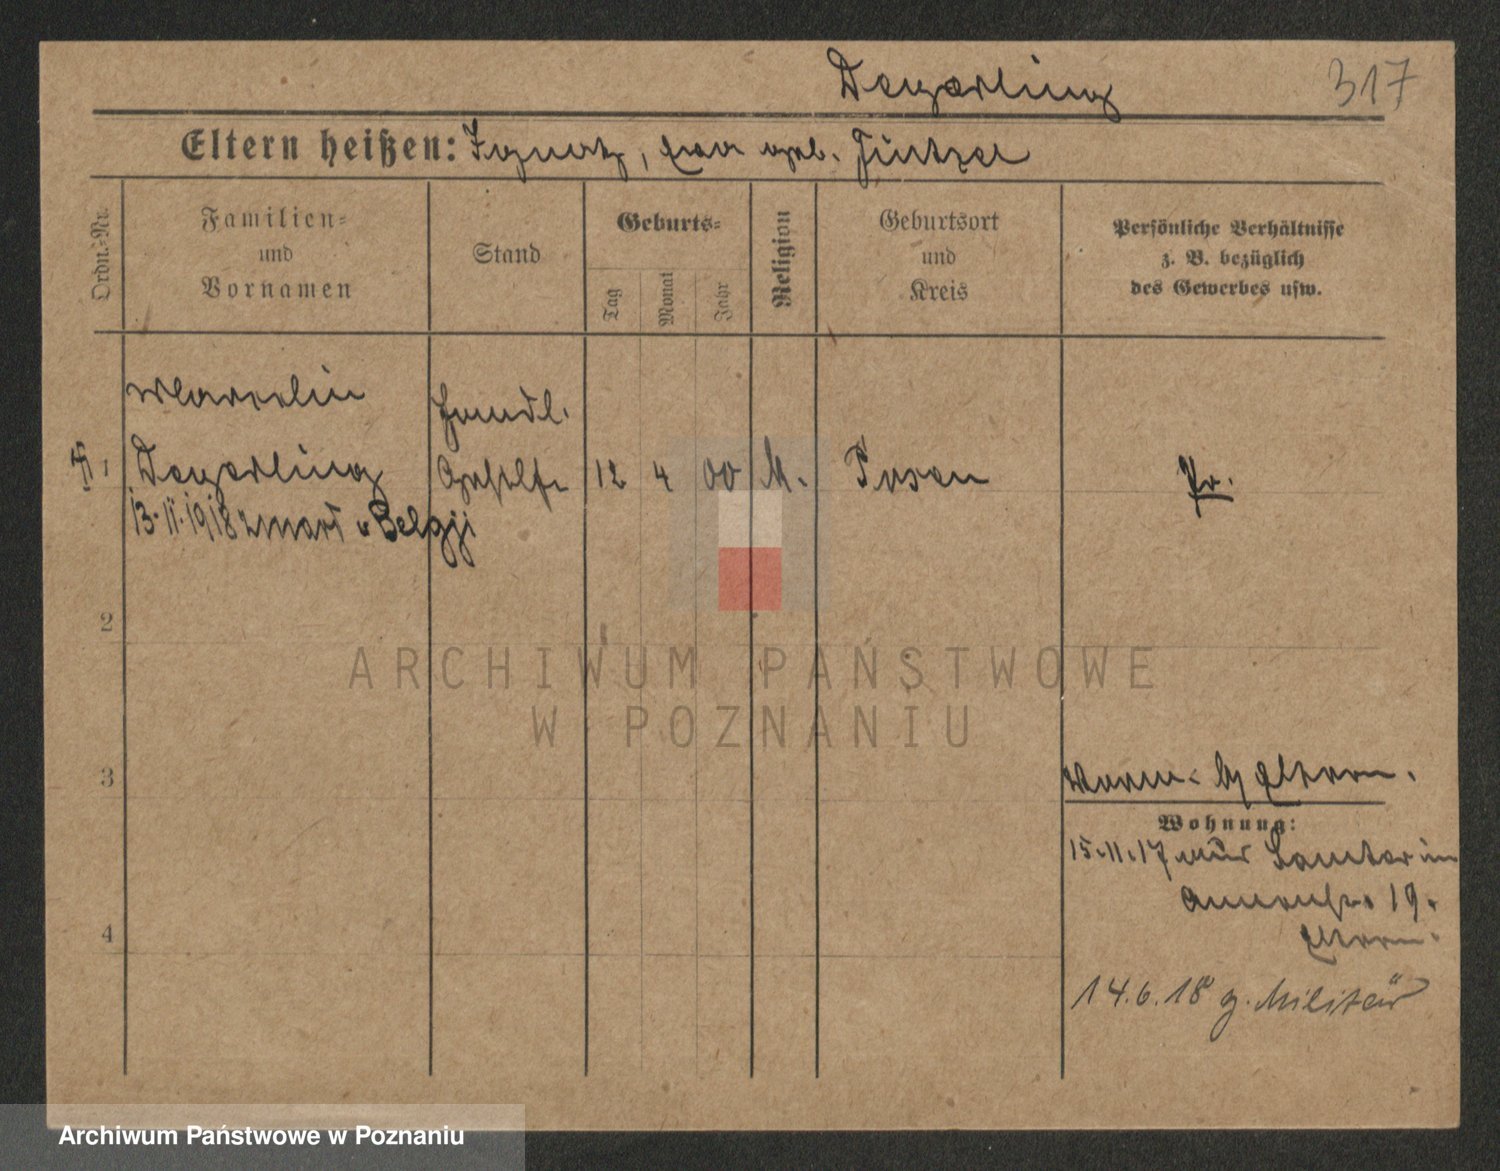 Degórling 317
Eltern heißen: Ignatz, Eva geb.
Ordn.-Nr.
Familien- und Vornamen
Stand
Geburts-
Tag
Monat
Jahr
Religion
Geburtsort und Kreis
Persönliche Verhältnisse z. B. bezüglich des Gewerbes usw.
Marcelin
Handl.
1 Degórling Gehilfe 12 4 00 k. Posen Pr.
13.11.1918 zmarł w Belgji
2
3
4
Eltern.
Wohnung:
15.11.17 nur
19.
Eltern.
14.6.18 z. Militär
ARCHIWUM PAŃSTWOWE
W POZNANIU
Archiwum Państwowe w Poznaniu